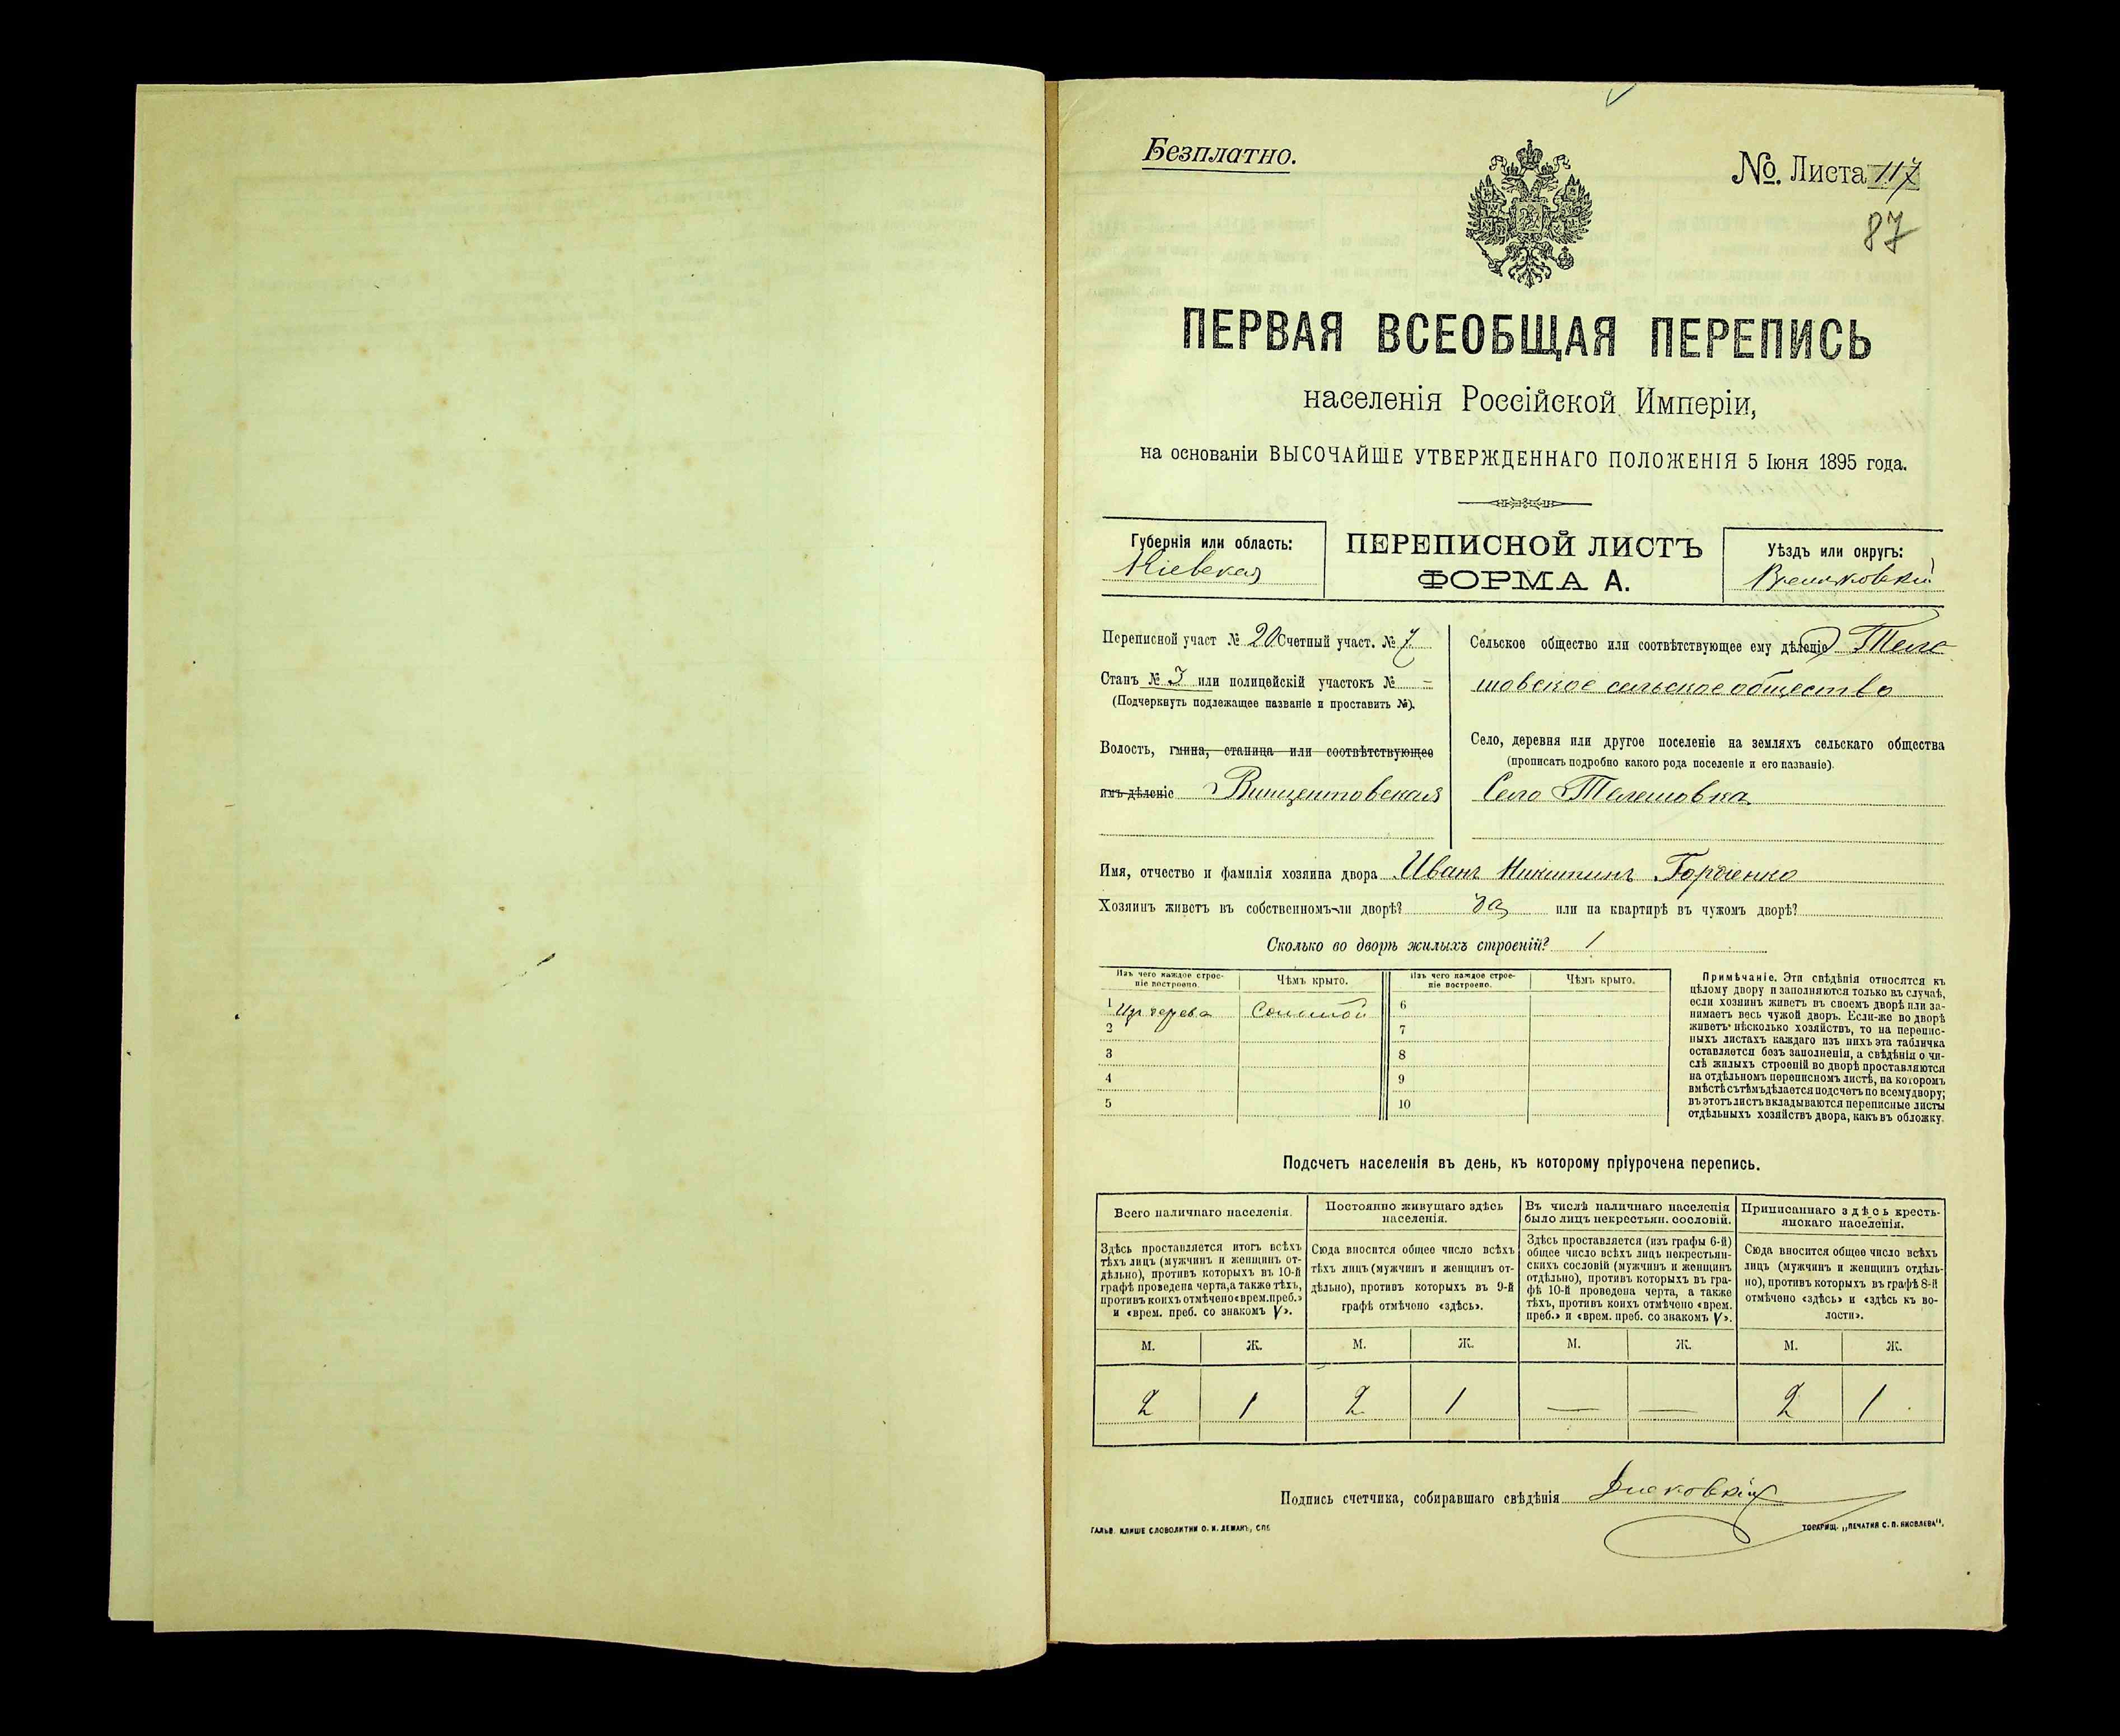 Безплатно.
№. Листа 117
87
ПЕРВАЯ ВСЕОБЩАЯ ПЕРЕПИСЬ
населенія Россійской Имперіи,
на основаніи ВЫСОЧАЙШЕ УТВЕРЖДЕННАГО ПОЛОЖЕНІЯ 5 Іюня 1895 года.
Губернія или область:
Кіевская
ПЕРЕПИСНОЙ ЛИСТЪ
ФОРМА А.
Уѣздъ или округъ:
Переписной участ № 20 Счетный участ. № 7
Станъ № 3 или полицейскій участокъ № –
(Подчеркнуть подлежащее названіе и проставить №).
Волость, гмина, станица или соотвѣтствующее
имъ дѣленіе Винцентовская
Сельское общество или соотвѣтствующее ему дѣленіе Теле
шовское сельское общество
Село, деревня или другое поселеніе на земляхъ сельскаго общества
(прописать подробно какого рода поселеніе и его названіе).
Село Телешовка
Имя, отчество и фамилія хозяина двора Иванъ Никитинъ Гордіенко
Хозяинъ живетъ въ собственномъ-ли дворѣ? да или на квартирѣ въ чужомъ дворѣ?
Сколько во дворѣ жилыхъ строеній? 1
Изъ чего каждое строе-
ніе построено.
Чѣмъ крыто.
Изъ чего каждое строе-
ніе построено.
Чѣмъ крыто.
1 Изъ дерева Соломой 6
2 7
3 8
4 9
5 10
Примѣчаніе. Эти свѣдѣнія относятся къ
цѣлому двору и заполняются только въ случаѣ,
если хозяинъ живетъ въ своемъ дворѣ или за-
нимаетъ весь чужой дворъ. Если-же во дворѣ
живетъ нѣсколько хозяйствъ, то на перепис-
ныхъ листахъ каждаго изъ нихъ эта табличка
оставляется безъ заполненія, а свѣдѣнія о чи-
слѣ жилыхъ строеній во дворѣ проставляются
на отдѣльномъ переписномъ листѣ, на которомъ
вмѣстѣ съ тѣмъ дѣлается подсчетъ по всему двору;
въ этотъ листъ вкладываются переписные листы
отдѣльныхъ хозяйствъ двора, какъ въ обложку.
Подсчетъ населенія въ день, къ которому пріурочена перепись.
Всего наличнаго населенія.
Здѣсь проставляется итогъ всѣхъ
тѣхъ лицъ (мужчинъ и женщинъ от-
дѣльно), противъ которыхъ въ 10-й
графѣ проведена черта, а также тѣхъ,
противъ коихъ отмѣчено «врем. преб.»
и «врем. преб. со знакомъ V».
Постоянно живущаго здѣсь
населенія.
Сюда вносится общее число всѣхъ
тѣхъ лицъ (мужчинъ и женщинъ от-
дѣльно), противъ которыхъ въ 9-й
графѣ отмѣчено «здѣсь».
Въ числѣ наличнаго населенія
было лицъ некрестьян. сословій.
Здѣсь проставляется (изъ графы 6-й)
общее число всѣхъ лицъ некрестьян-
скихъ сословій (мужчинъ и женщинъ
отдѣльно), противъ которыхъ въ гра-
фѣ 10-й проведена черта, а также
тѣхъ, противъ коихъ отмѣчено «врем.
преб.» и «врем. преб. со знакомъ V».
Приписаннаго здѣсь кресть-
янскаго населенія.
Сюда вносится общее число всѣхъ
лицъ (мужчинъ и женщинъ отдѣль-
но), противъ которыхъ въ графѣ 8-й
отмѣчено «здѣсь» и «здѣсь къ во-
лости».
М. Ж. М. Ж. М. Ж. М. Ж.
2 1 2 1 — — 2 1
Подпись счетчика, собиравшаго свѣдѣнія
ГАЛЬВ. КЛИШЕ СЛОВОЛИТНИ О. И. ЛЕМАНЪ, СПБ.
ТОВАРИЩ. „ПЕЧАТНЯ С. П. ЯКОВЛЕВА".